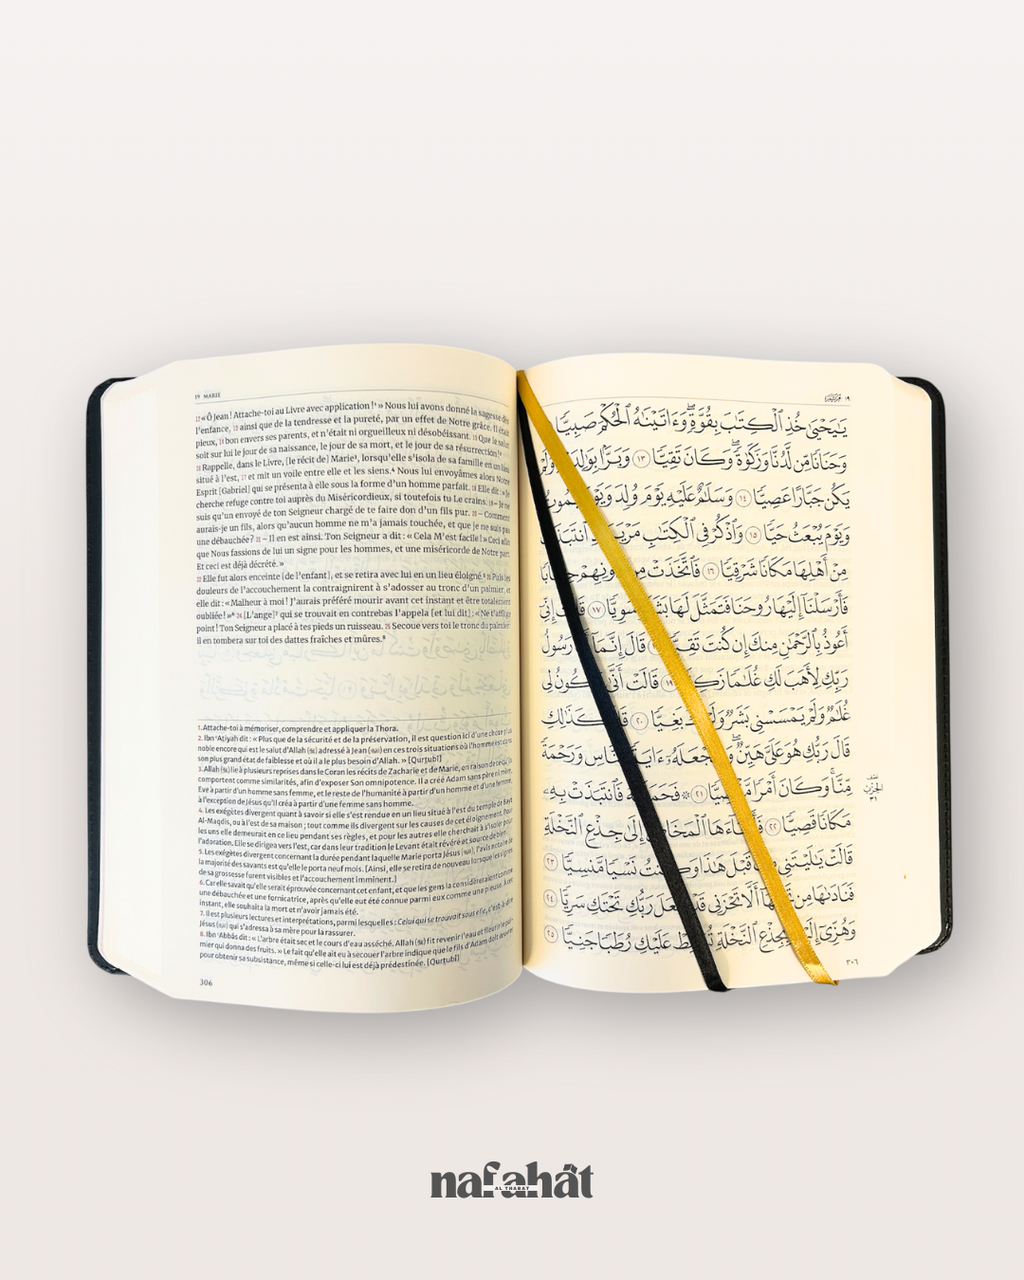 19 MARIE
12 « Ô Jean ! Attache-toi au Livre avec application !¹ » Nous lui avons donné la sagesse dès
l'enfance, 13 ainsi que de la tendresse et la pureté, par un effet de Notre grâce. Il était
pieux, 14 bon envers ses parents, et n'était ni orgueilleux ni désobéissant. 15 Que le salut
soit sur lui le jour de sa naissance, le jour de sa mort, et le jour de sa résurrection !²
16 Rappelle, dans le Livre, [le récit de] Marie³, lorsqu'elle s'isola de sa famille en un lieu
situé à l'est, 17 et mit un voile entre elle et les siens.⁴ Nous lui envoyâmes alors Notre
Esprit [Gabriel] qui se présenta à elle sous la forme d'un homme parfait. 18 Elle dit : « Je
cherche refuge contre toi auprès du Miséricordieux, si toutefois tu Le crains. 19 – Je ne
suis qu'un envoyé de ton Seigneur chargé de te faire don d'un fils pur. 20 – Comment
aurais-je un fils, alors qu'aucun homme ne m'a jamais touchée, et que je ne suis pas
une débauchée ? 21 – Il en est ainsi. Ton Seigneur a dit : « Cela M'est facile ! » Ceci afin
que Nous fassions de lui un signe pour les hommes, et une miséricorde de Notre part.
Et ceci est déjà décrété. »
22 Elle fut alors enceinte [de l'enfant], et se retira avec lui en un lieu éloigné.⁵ 23 Puis les
douleurs de l'accouchement la contraignirent à s'adosser au tronc d'un palmier, et
elle dit : « Malheur à moi ! J'aurais préféré mourir avant cet instant et être totalement
oubliée ! »⁶ 24 [L'ange]⁷ qui se trouvait en contrebas l'appela [et lui dit] : « Ne t'afflige
point ! Ton Seigneur a placé à tes pieds un ruisseau. 25 Secoue vers toi le tronc du palmier
il en tombera sur toi des dattes fraîches et mûres.⁸
1. Attache-toi à mémoriser, comprendre et appliquer la Thora.
2. Ibn 'Atiyah dit : « Plus que de la sécurité et de la préservation, il est question ici d'une chose plus
noble encore qui est le salut d'Allah (ﷻ) adressé à Jean (ﷺ) en ces trois situations où l'homme est dans
son plus grand état de faiblesse et où il a le plus besoin d'Allah. » [Qurtubî]
3. Allah (ﷻ) lie à plusieurs reprises dans le Coran les récits de Zacharie et de Marie, en raison de ce qu'ils
comportent comme similarités, afin d'exposer Son omnipotence. Il a créé Adam sans père ni mère,
Eve à partir d'un homme sans femme, et le reste de l'humanité à partir d'un homme et d'une femme,
à l'exception de Jésus qu'il créa à partir d'une femme sans homme.
4. Les exégètes divergent quant à savoir si elle s'est rendue en un lieu situé à l'est du temple de Bayt
Al-Maqdis, ou à l'est de sa maison ; tout comme ils divergent sur les causes de cet éloignement. Pour
les uns elle demeurait en ce lieu pendant ses règles, et pour les autres elle cherchait à s'isoler pour
l'adoration. Elle se dirigea vers l'est, car dans leur tradition le Levant était révéré et source de bien.
5. Les exégètes divergent concernant la durée pendant laquelle Marie porta Jésus (ﷺ), l'avis notoire de
la majorité des savants est qu'elle le porta neuf mois. [Ainsi, elle se retira de nouveau lorsque les signes
de sa grossesse furent visibles et l'accouchement imminent.]
6. Car elle savait qu'elle serait éprouvée concernant cet enfant, et que les gens la considéreraient comme
une débauchée et une fornicatrice, après qu'elle eut été connue parmi eux comme une pieuse. À cet
instant, elle souhaita la mort et n'avoir jamais été.
7. Il est plusieurs lectures et interprétations, parmi lesquelles : Celui qui se trouvait sous elle, c'est-à-dire
Jésus (ﷺ) qui s'adressa à sa mère pour la rassurer.
8. Ibn 'Abbâs dit : « L'arbre était sec et le cours d'eau asséché. Allah (ﷻ) fit revenir l'eau et fleurir le
mier qui donna des fruits. » Le fait qu'elle ait eu à secouer l'arbre indique que le fils d'Adam doit œuvrer
pour obtenir sa subsistance, même si celle-ci lui est déjà prédestinée. [Qurtubî]
306
١٩ مريم
يَٰيَحْيَىٰ خُذِ ٱلْكِتَٰبَ بِقُوَّةٍۖ وَءَاتَيْنَٰهُ ٱلْحُكْمَ صَبِيًّا
وَحَنَانًا مِّن لَّدُنَّا وَزَكَوٰةًۖ وَكَانَ تَقِيًّا ١٣ وَبَرًّۢا بِوَٰلِدَيْهِ وَلَمْ
يَكُن جَبَّارًا عَصِيًّا ١٤ وَسَلَٰمٌ عَلَيْهِ يَوْمَ وُلِدَ وَيَوْمَ يَمُوتُ
وَيَوْمَ يُبْعَثُ حَيًّا ١٥ وَٱذْكُرْ فِى ٱلْكِتَٰبِ مَرْيَمَ إِذِ ٱنتَبَذَتْ
مِنْ أَهْلِهَا مَكَانًا شَرْقِيًّا ١٦ فَٱتَّخَذَتْ مِن دُونِهِمْ حِجَابًا
فَأَرْسَلْنَآ إِلَيْهَا رُوحَنَا فَتَمَثَّلَ لَهَا بَشَرًا سَوِيًّا ١٧ قَالَتْ إِنِّىٓ
أَعُوذُ بِٱلرَّحْمَٰنِ مِنكَ إِن كُنتَ تَقِيًّا قَالَ إِنَّمَآ أَنَا۠ رَسُولُ
رَبِّكِ لِأَهَبَ لَكِ غُلَٰمًا زَكِيًّا ١٩ قَالَتْ أَنَّىٰ يَكُونُ لِى
غُلَٰمٌ وَلَمْ يَمْسَسْنِى بَشَرٌ وَلَمْ أَكُ بَغِيًّا ٢٠ قَالَ كَذَٰلِكِ
قَالَ رَبُّكِ هُوَ عَلَىَّ هَيِّنٌۖ وَلِنَجْعَلَهُۥٓ ءَايَةً لِّلنَّاسِ وَرَحْمَةً
مِّنَّاۚ وَكَانَ أَمْرًا مَّقْضِيًّا ٢١ ۞ فَحَمَلَتْهُ فَٱنتَبَذَتْ بِهِۦ
مَكَانًا قَصِيًّا ٢٢ فَأَجَآءَهَا ٱلْمَخَاضُ إِلَىٰ جِذْعِ ٱلنَّخْلَةِ
قَالَتْ يَٰلَيْتَنِى مِتُّ قَبْلَ هَٰذَا وَكُنتُ نَسْيًا مَّنسِيًّا ٢٣
فَنَادَىٰهَا مِن تَحْتِهَآ أَلَّا تَحْزَنِى قَدْ جَعَلَ رَبُّكِ تَحْتَكِ سَرِيًّا ٢٤
وَهُزِّىٓ إِلَيْكِ بِجِذْعِ ٱلنَّخْلَةِ تُسَٰقِطْ عَلَيْكِ رُطَبًا جَنِيًّا ٢٥
نصف
الحزب
٣١
٣٠٦
nafahât
AL THABAT